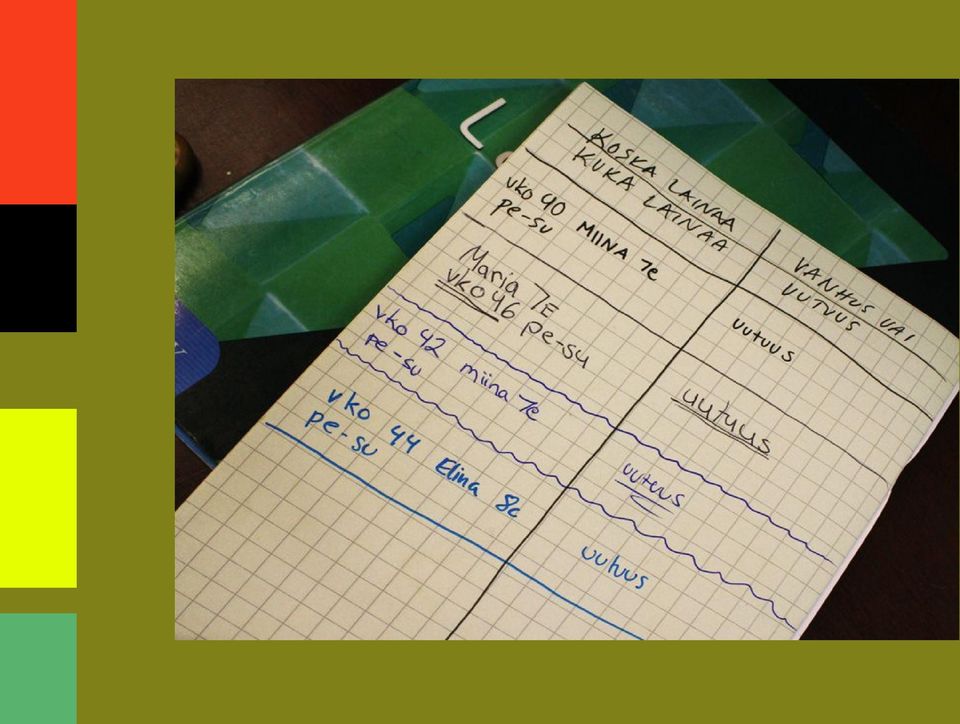 KOSKA LAINAA
KUKA LAINAA
VANHUS VAI
UUTUUS
vko 40 MIINA 7e
pe-su
uutuus
Marja 7E
vko 46 pe-su
uutuus
vko 42 miina 7e
pe-su
uutuus
vko 44 Elina 8c
pe-su
uutuus
L